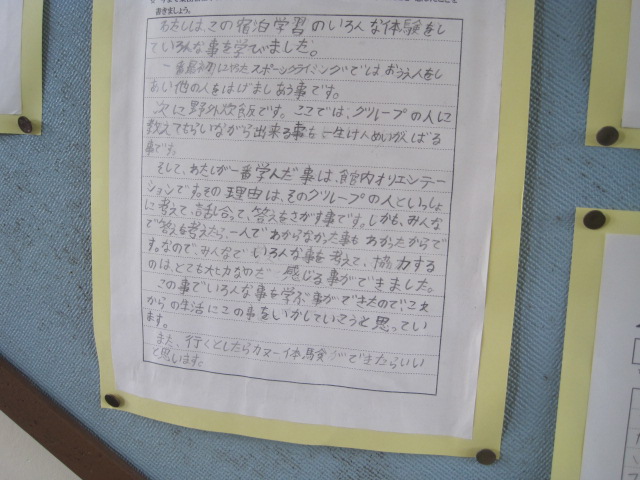 書きましょう。
わたしは、この宿泊学習のいろんな体験をし
ていろんな事を学びました。
一番最初にやったスポーツクライミングではおうえ人をし
あい他の人をはげましあう事です。
次に野外炊飯です。ここでは、グループの人に
教えてもらいながら出来る事を一生けんめいがんばる
事です。
そして、わたしが一番学んだ事は、館内オリエンテー
ションです。その理由は、そのグループの人といっしょ
に考えて、話し合って、答えをさがす事です。しかも、みんな
で答えを考えたら、一人でわからなかった事もわかったからで
す。なので、みんなでいろんな事を考えて、協力する
のは、とても大じなのだ感じる事ができました。
この事でいろんな事を学ぶ事ができたので、これ
からの生活にこの事をいかしていこうと思ってい
ます。
また、行くとしたらカヌー体験ができたらいい
と思います。